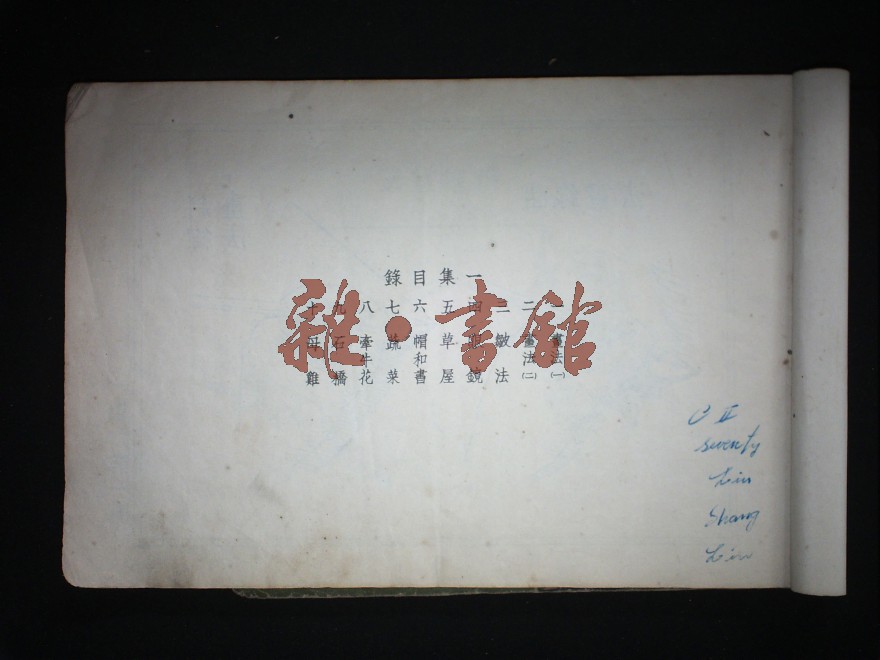 一集目錄
一 畫法㈠
二 畫法㈡
三 法
四 鏡
五 草屋
六 帽和書
七 蔬菜
八 牽牛花
九 石橋
十 母雞
雜·書館
C II
seventy
Lin
Shang
Lin